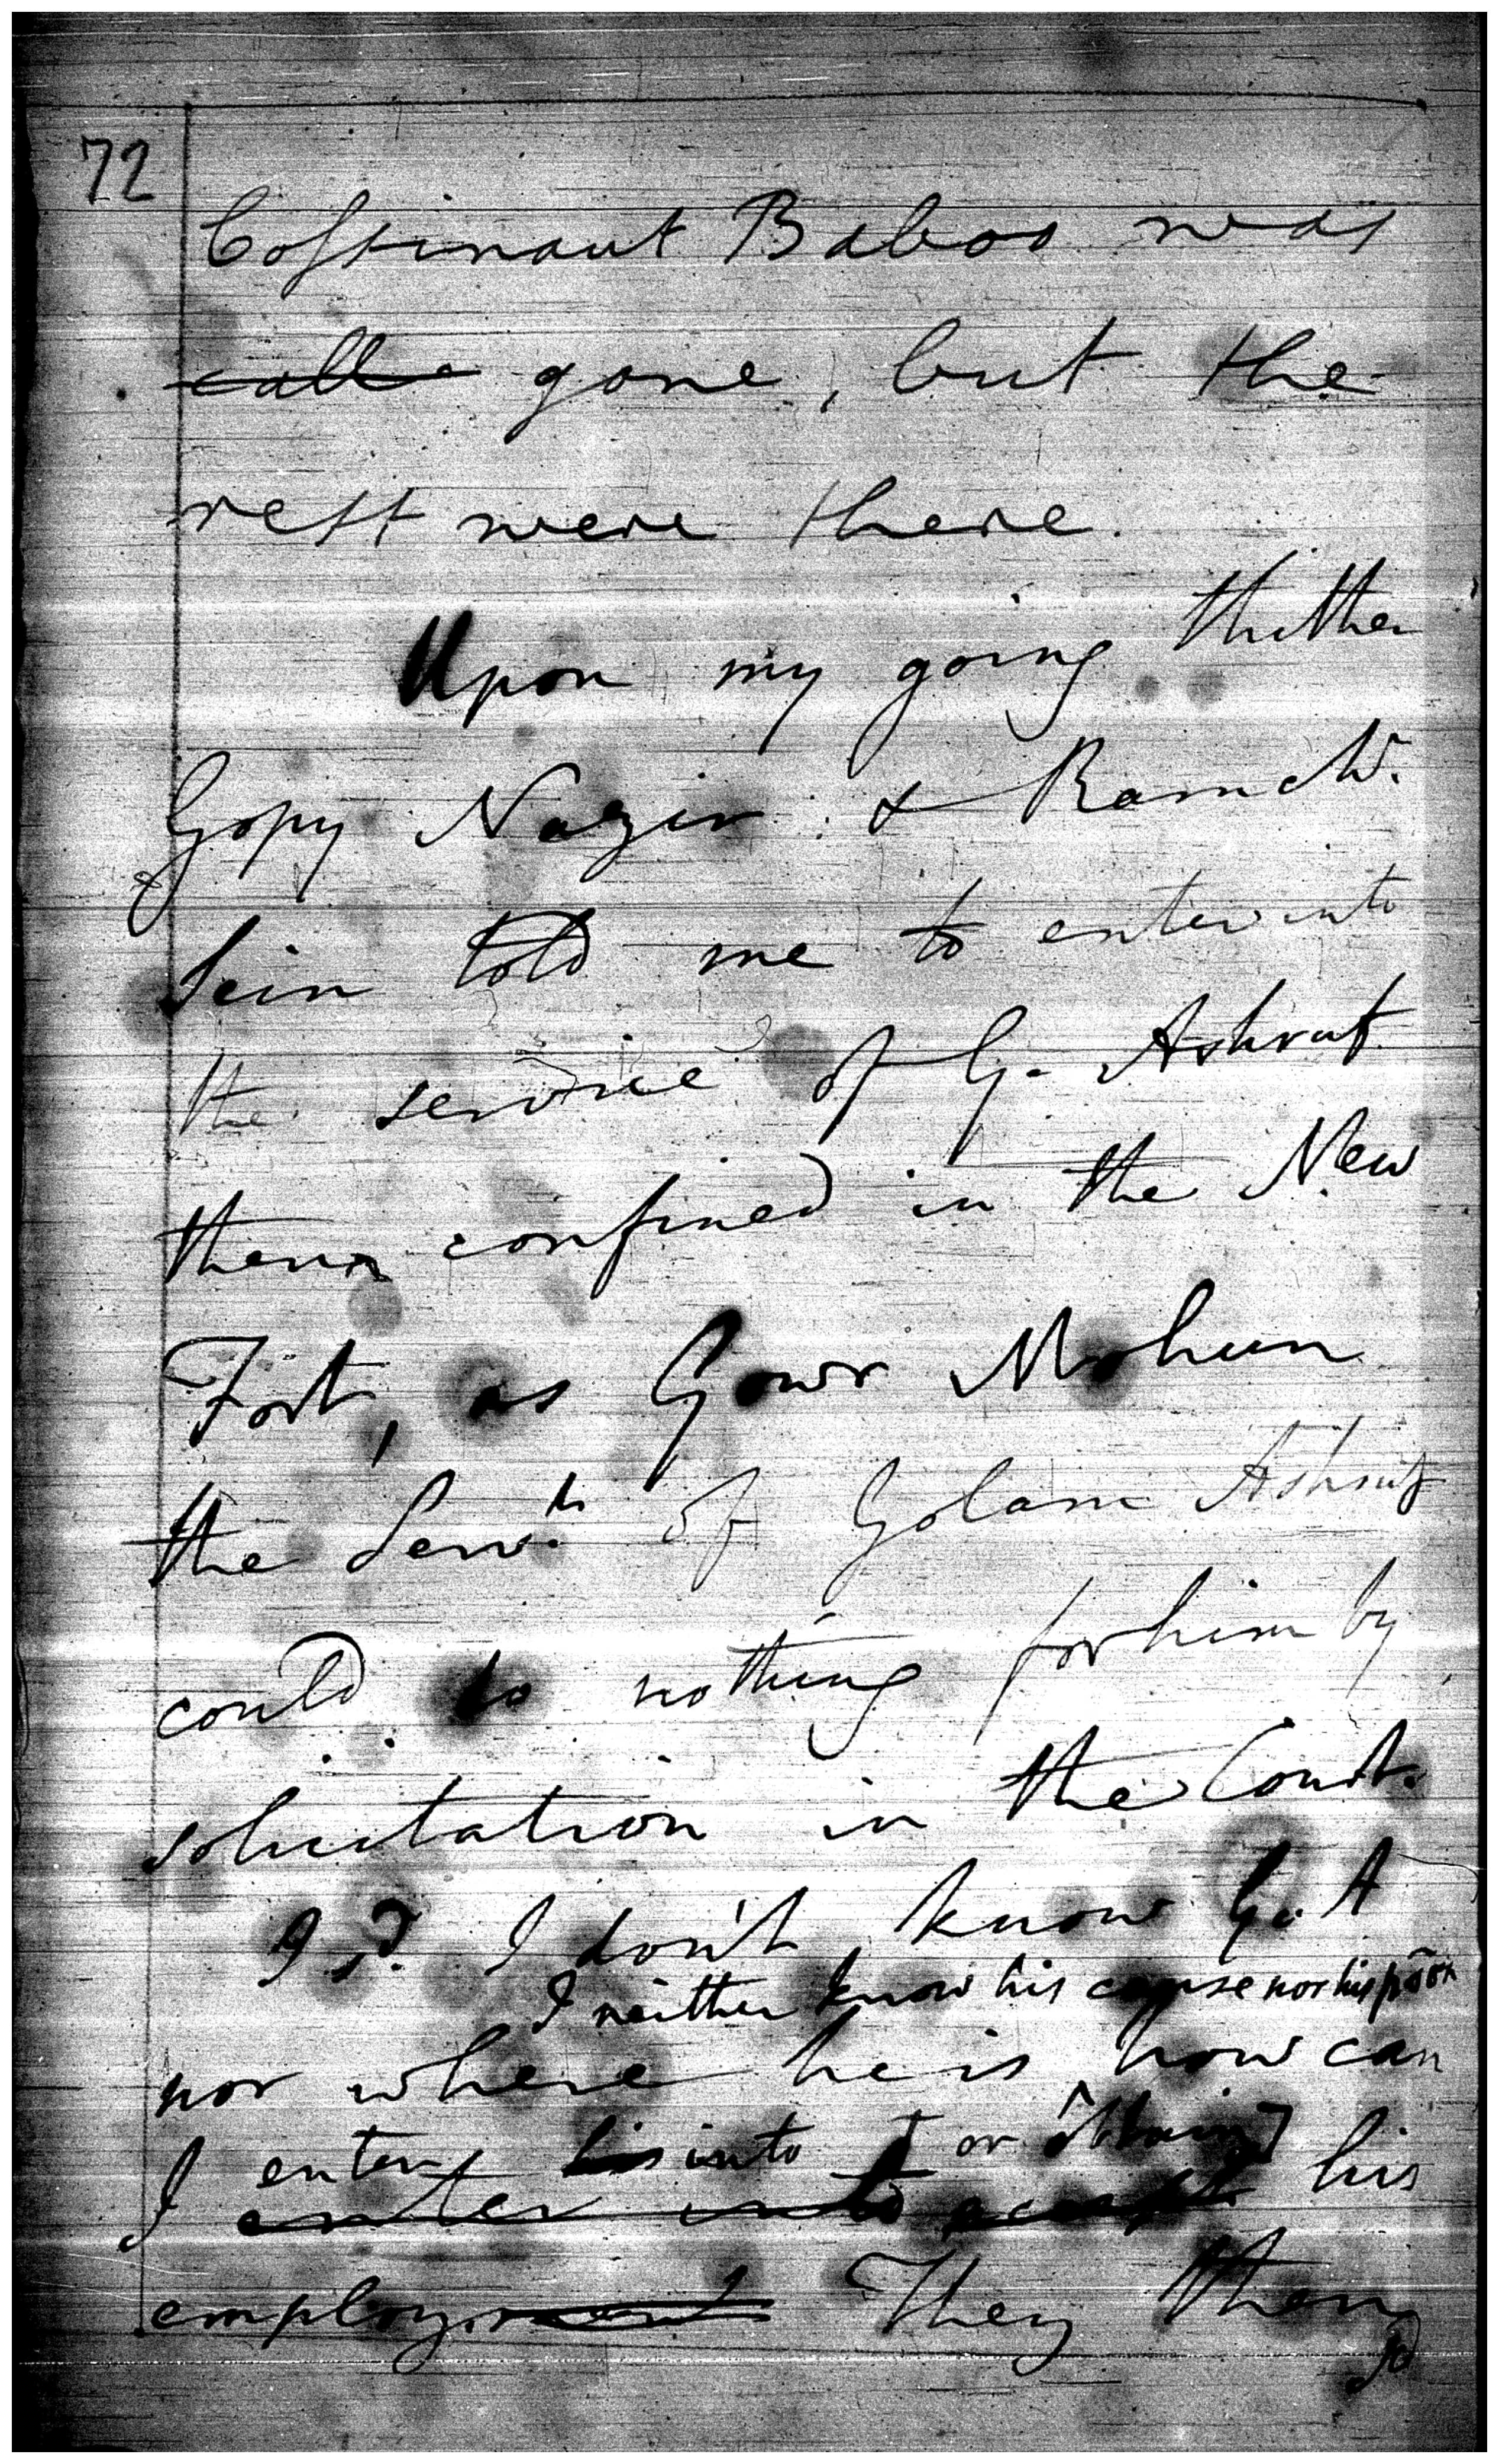 72
Cossinaut Baboo was
calle gone, but the
rest were there.
Upon my going thither
Gopy Nazir & Ram Ch.
Sein told me to enter into
the service of G. Ashruf
then confined in the New
Fort, as Gowr Mohun
the Serv.t of Golam Ashruf
could do nothing for him by
solicitation in the Court.
I sd. I don't know G. A
I neither know his cause nor his
nor where he is how can
I enter his into or obtain] his
enter into accept
employment They then
sd